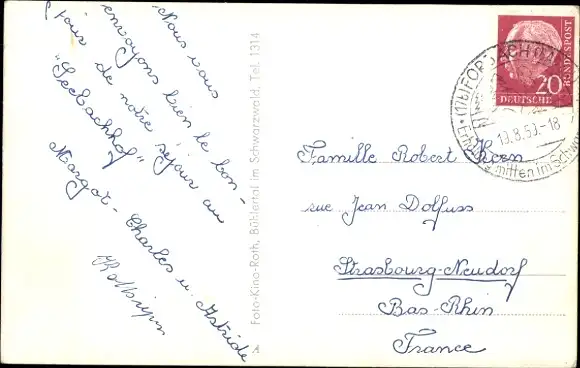 Nous vous
envoyons bien le bon-
jour de notre séjour au
"Seebachhof"
Margot - Charles u. Astride
Foto-Kino-Roth, Bühlertal im Schwarzwald, Tel. 1314
20
DEUTSCHE BUNDESPOST
(17b) FORBACH
13.8.53.-18
mitten im Schw
Famille Robert Kern
rue Jean Dolfuss
Strasbourg-Neudorf
Bas-Rhin
France